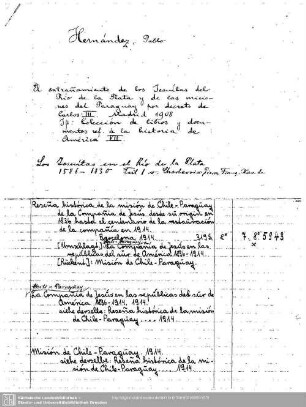 Hernández, Pablo
El extrañamiento de los Jesuitas del
Río de la Plata y de las misio-
nes del Paraguay por decreto de
Carlos III Madrid 1908
Colección de libros y docu-
mentos ref. a la historia de
América VII
Los Jesuitas en el Río de la Plata
1586-1830
Reseña histórica de la misión de Chile-Paraguay
de la Compañía de Jesús desde su origen en
1836 hasta el centenario de la restauración
de la compañía en 1914.
Barcelona 1914. 319 S. 8° 7. 8° 5943
[Umschlagt.:] La Compañía de Jesús en las
repúblicas del sur de América 1836-1914.
[Rückent.]: Misión de Chile-Paraguay.
Chile-Paraguay
La Compañía de Jesús en las repúblicas del sur de
América 1836-1914. 1914.
siehe derselbe: Reseña histórica de la misión
de Chile-Paraguay .... 1914.
Misión de Chile-Paraguay. 1914.
siehe derselbe: Reseña histórica de la mi-
sión de Chile-Paraguay .... 1914